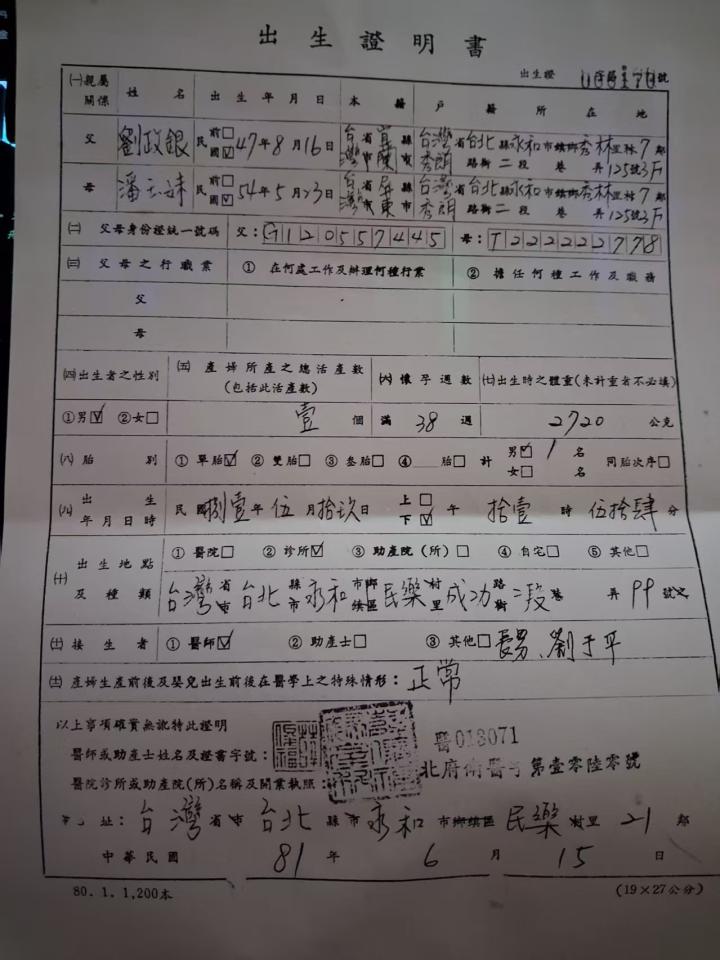 出生證明書
出生證 號
㈠親屬關係 姓名 出生年月日 本籍 戶籍所在地
父 劉政銀 民 前□ 國☑ 47年8月16日 台灣 省市 宜蘭 縣市 台灣省台北縣永和市鎮鄉秀林里村7鄰
秀朗路街二段 巷 弄125號3F
母 潘 妹 民 前□ 國☑ 54年5月23日 台灣 省市 屏東 縣市 台灣省台北縣永和市鎮鄉秀林里村7鄰
秀朗路街二段 巷 弄125號3F
㈡ 父母身份證統一號碼 父:G120557445 母:T222222778
㈢ 父母之行職業 ① 在何處工作及辦理何種行業 ② 擔任何種工作及職務
父
母
㈣出生者之性別 ㈤ 產婦所產之總活產數(包括此活產數) ㈥ 懷孕週數 ㈦出生時之體重(未計重者不必填)
①男☑ ②女□ 壹 個 滿 38 週 2720 公克
㈧ 胎別 ① 單胎☑ ② 雙胎□ ③ 叁胎□ ④ 胎□ 計 男☑ 1 名 女□ 名 同胎次序□
㈨ 出生年月日時 民國捌壹年 伍 月拾玖日 上□ 下☑ 午 拾壹 時 伍拾肆 分
㈩ 出生地點及種類 ① 醫院□ ② 診所☑ ③ 助產院(所)□ ④ 自宅□ ⑤ 其他□
台灣 省市 台北 縣市 永和 市鄉鎮區 民樂 村里 成功 路街 二段 巷 弄 99 號之
㈪ 接生者 ① 醫師☑ ② 助產士□ ③ 其他□ 長男、劉于平
㈫ 產婦生產前後及嬰兒出生前後在醫學上之特殊情形:正常
以上事項確實無訛特此證明
醫師或助產士姓名及證書字號: 醫013071
醫院診所或助產院(所)名稱及開業執照: 北府衛醫 第壹零陸零號
址:台灣省市 台北 縣市 永和 市鄉鎮區 民樂 村里 21 鄰
中華民國 81 年 6 月 15 日
80.1.1,200本 (19×27公分)